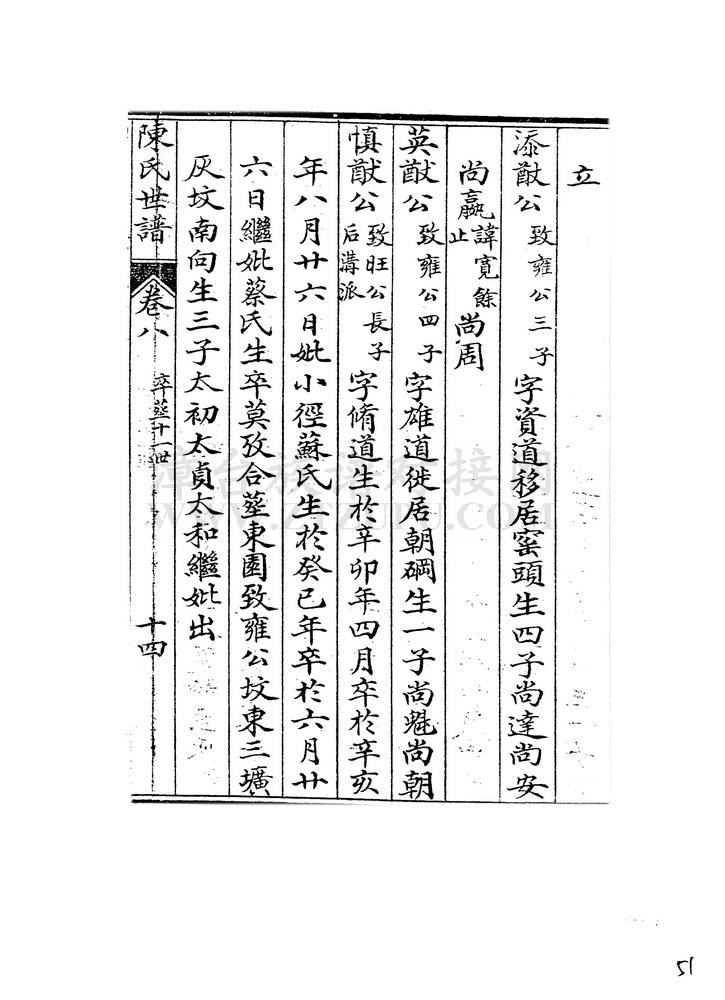 立
添猷公致雍公三子字資道移居窑頭生四子尚達尚安
尚嬴諱寬餘止尚周
英猷公致雍公四子字雄道徙居朝碙生一子尚魁尚朝
慎猷公致旺公長子后溝派字脩道生於辛卯年四月卒於辛亥
年八月廿六日妣小徑蘇氏生於癸巳年卒於六月廿
六日繼妣蔡氏生卒莫攷合塟東園致雍公坟東三壙
灰坟南向生三子太初太貞太和繼妣出
陳氏世譜
卷八
卒塟十一世
十四
51
WWW.ZTZUPU.COM